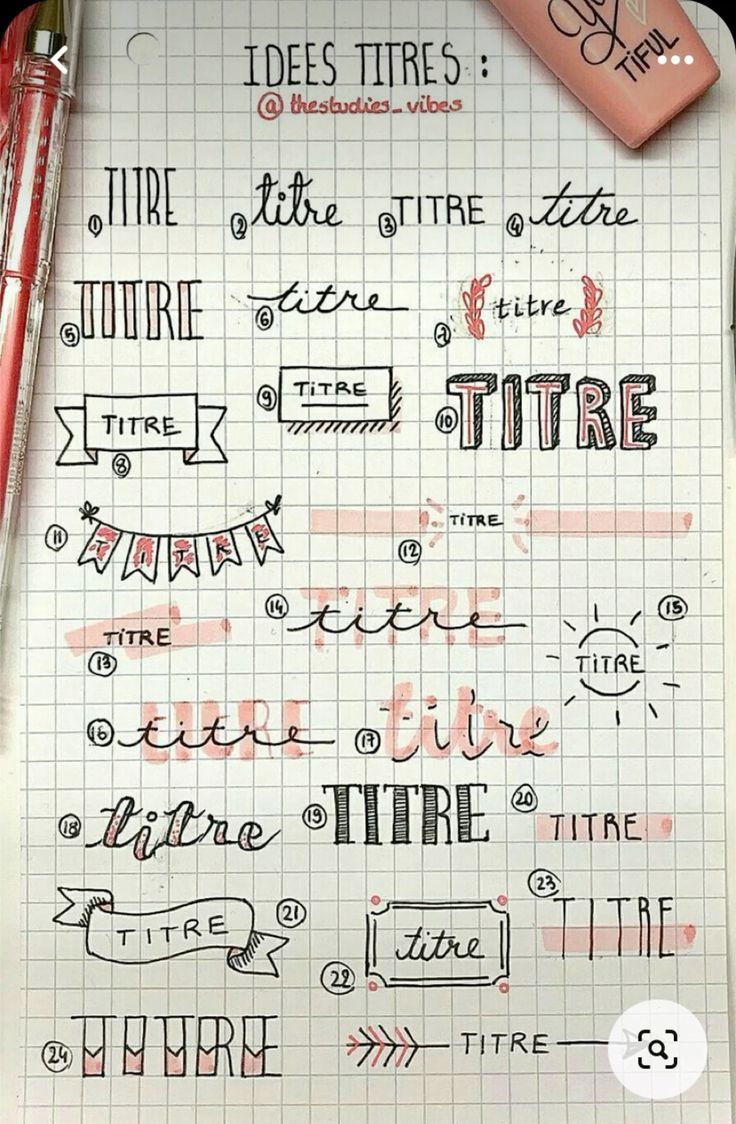 TiFUL
IDEES TITRES :
@thestudies_vibes
1 TITRE 2 titre 3 TITRE 4 titre
5 TITRE 6 titre 7 titre
8 TITRE 9 TiTRE 10 TITRE
11 TITRE 12 TiTRE
13 TiTRE 14 TITRE titre 15 TiTRE
16 TITRE titre 17 titre
18 titre 19 TITRE 20 TITRE
21 TITRE 22 titre 23 TITRE
24 TITRE TITRE